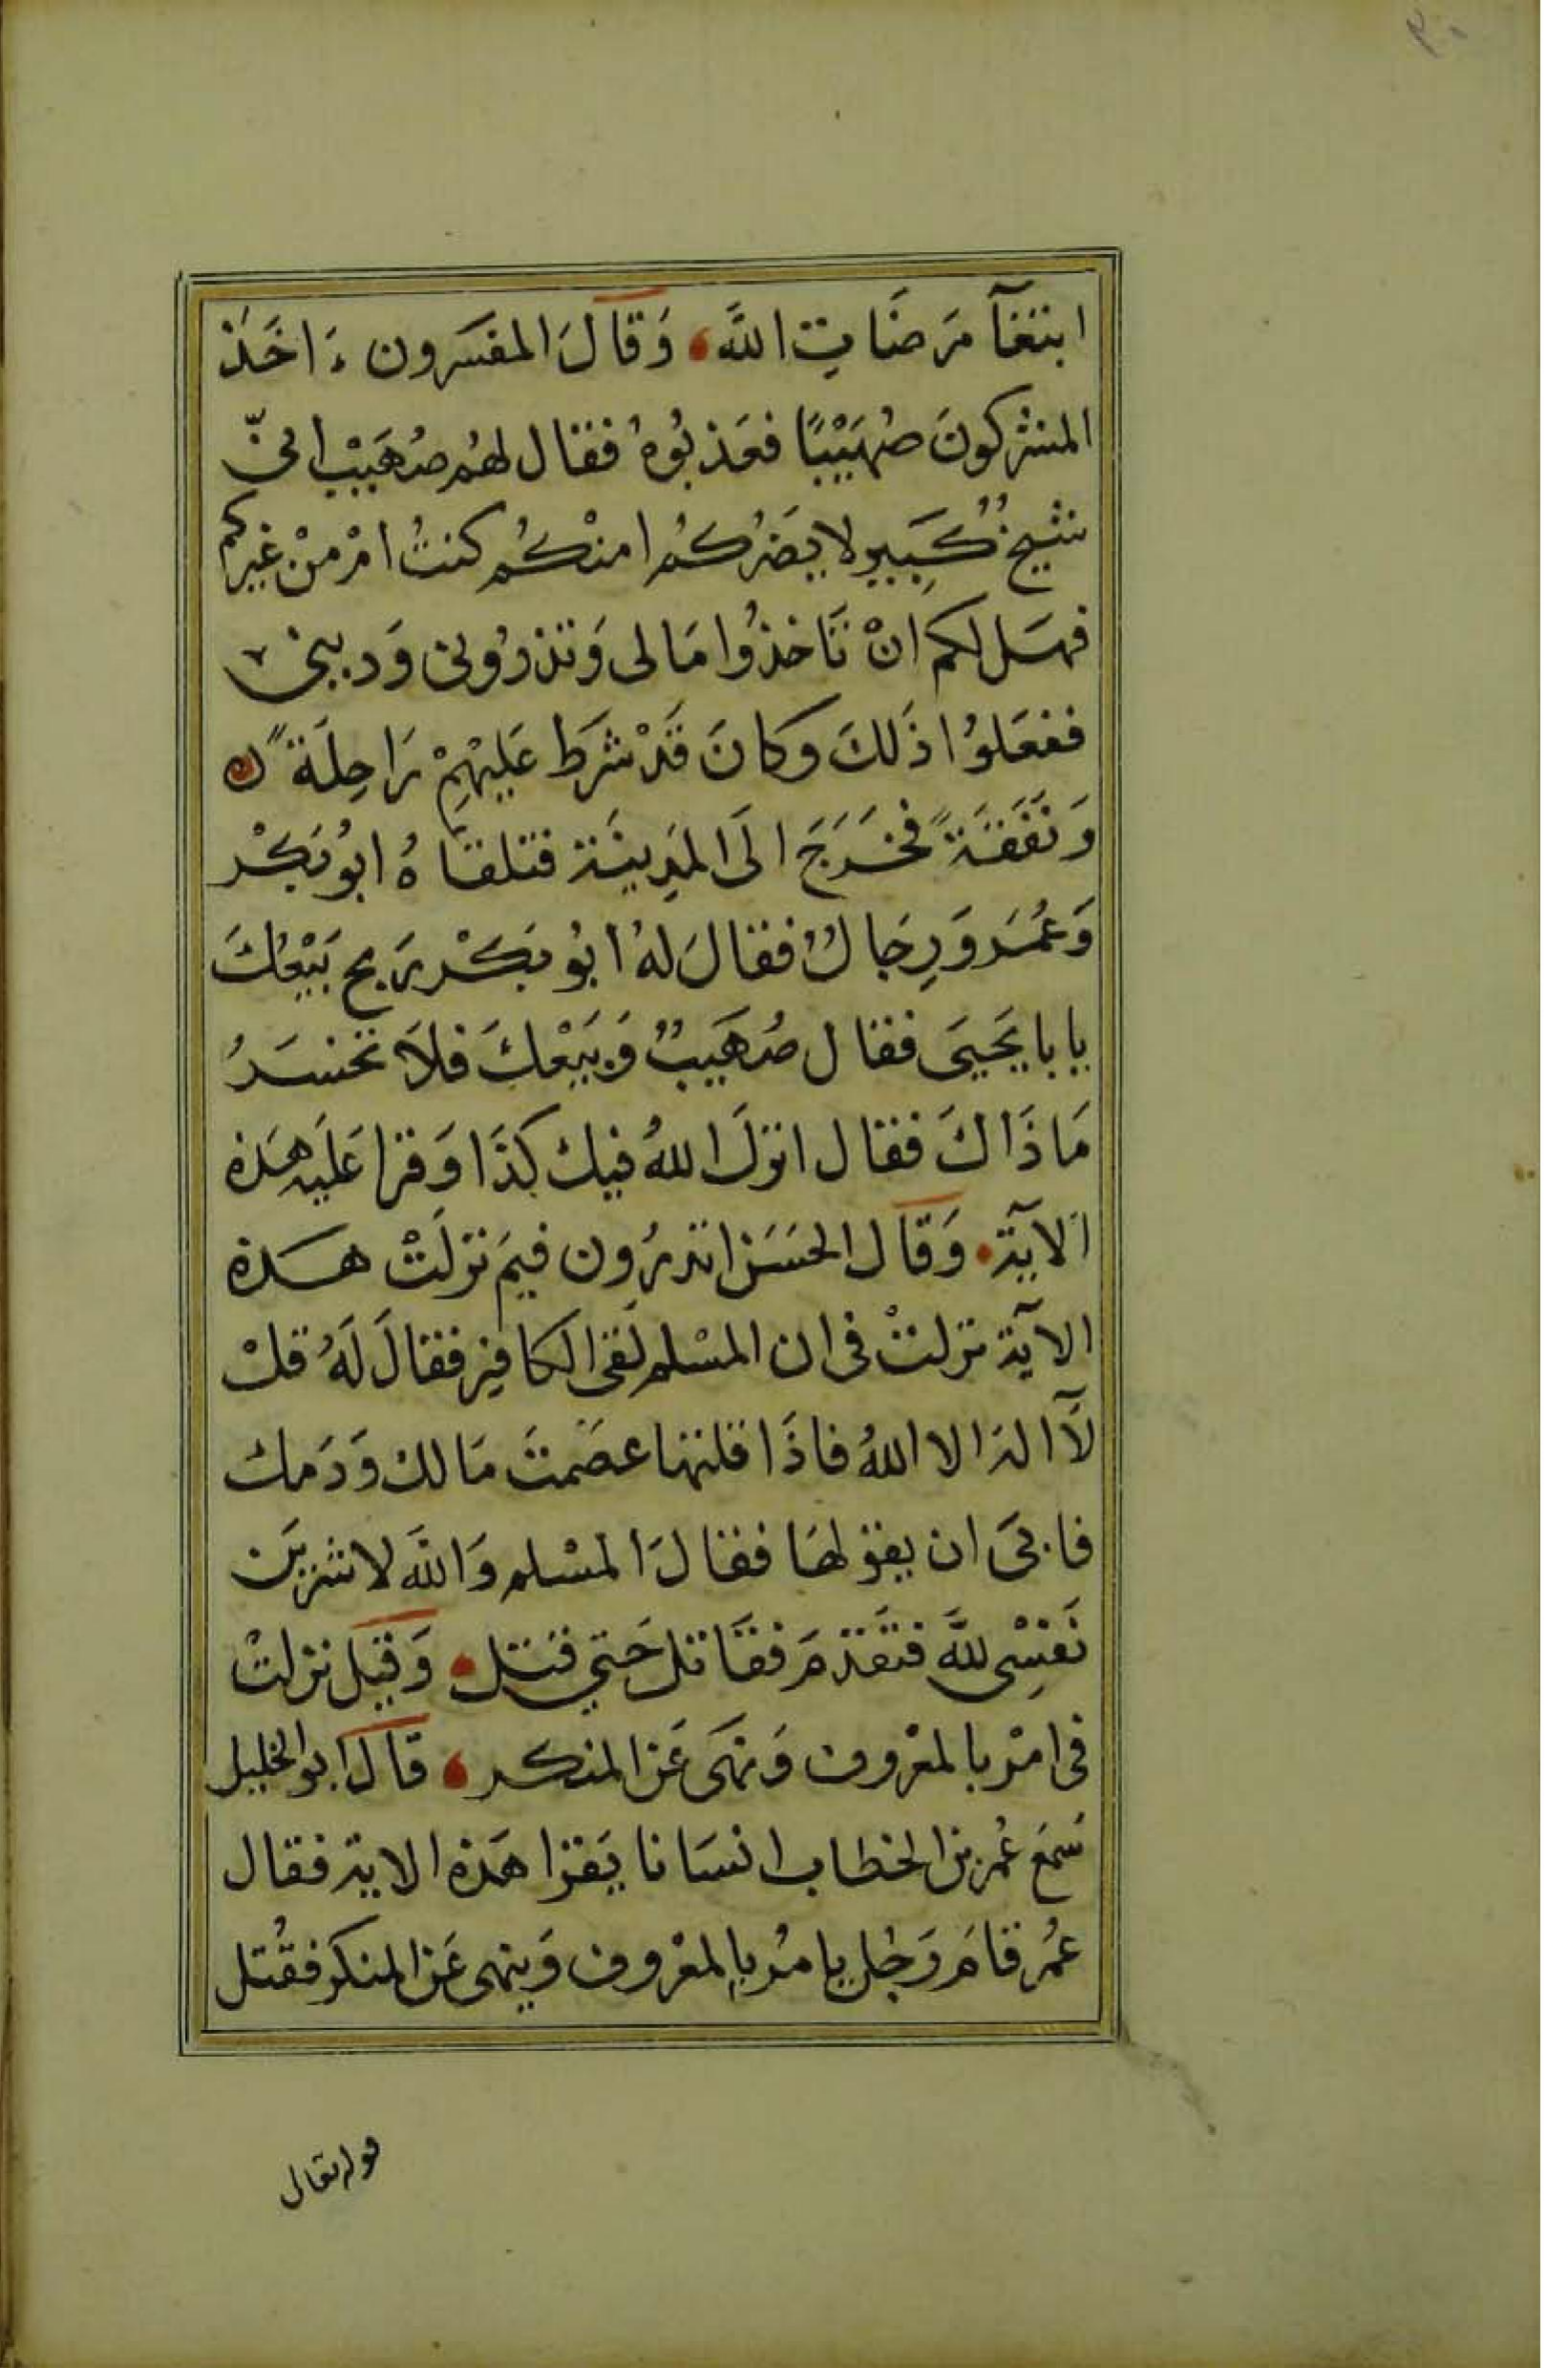 ابتغآ مَرضَات اللَّه وَقالَ المفسّرون ءَاخَذَ
المشركونَ صُهَيْبًا فعَذبُوهُ فقال لهُم صُهَيْب انّى
شيخٌ كَبِير لا يَضُركُم امنْكُم كنتُ امْ مِنْ غيركم
فهَل لكم انْ تَاخذُوا مَالى وَتذرُونى وَدينى
ففعَلوُا ذَلكَ وكانَ قَدْ شرَط عَليْهِمْ رَاحِلَةً
وَنفَقَةً فخَرَجَ الَى المَدِينَة فتلقاهُ ابوُ بَكْر
وَعُمَر وَرِجَالٌ فقالَ لهُ ابُو بكْر رَبح بَيْعُكَ
يابا يَحْيَى فقال صُهَيبٌ وَبَيْعُكَ فلاَ تخسَرُ
مَا ذَاكَ فقال انزلَ اللهُ فيك كذَا وَقرا عَليَه هَذه
الآيَة وَقال الحَسَن اتدرُون فيمَ نزلَتْ هَذه
الآيَة نزلتْ فى ان المسْلم لَقى الكافِر فقالَ لَهُ قلْ
لآ اله الا اللهُ فاذَا قلتها عصَمتَ مَالك وَدَمك
فابَى ان يقولهَا فقالَ المسْلم وَاللَّه لاشريَن
نَفسِى للَّه فتقَدّمَ فقَاتل حَتى قتل وَقيَل نزلتْ
فى امْر بالمعْروف وَنهَى عَن المنكر قالَ ابو الخليل
سَمعَ عُمر بن الخطاب انسَانا يَقرا هَذه الاية فقال
عمُر قامَ رَجُل يامُر بالمعْروف وَينهى عَن المنكر فقُتل
قوله تعالى